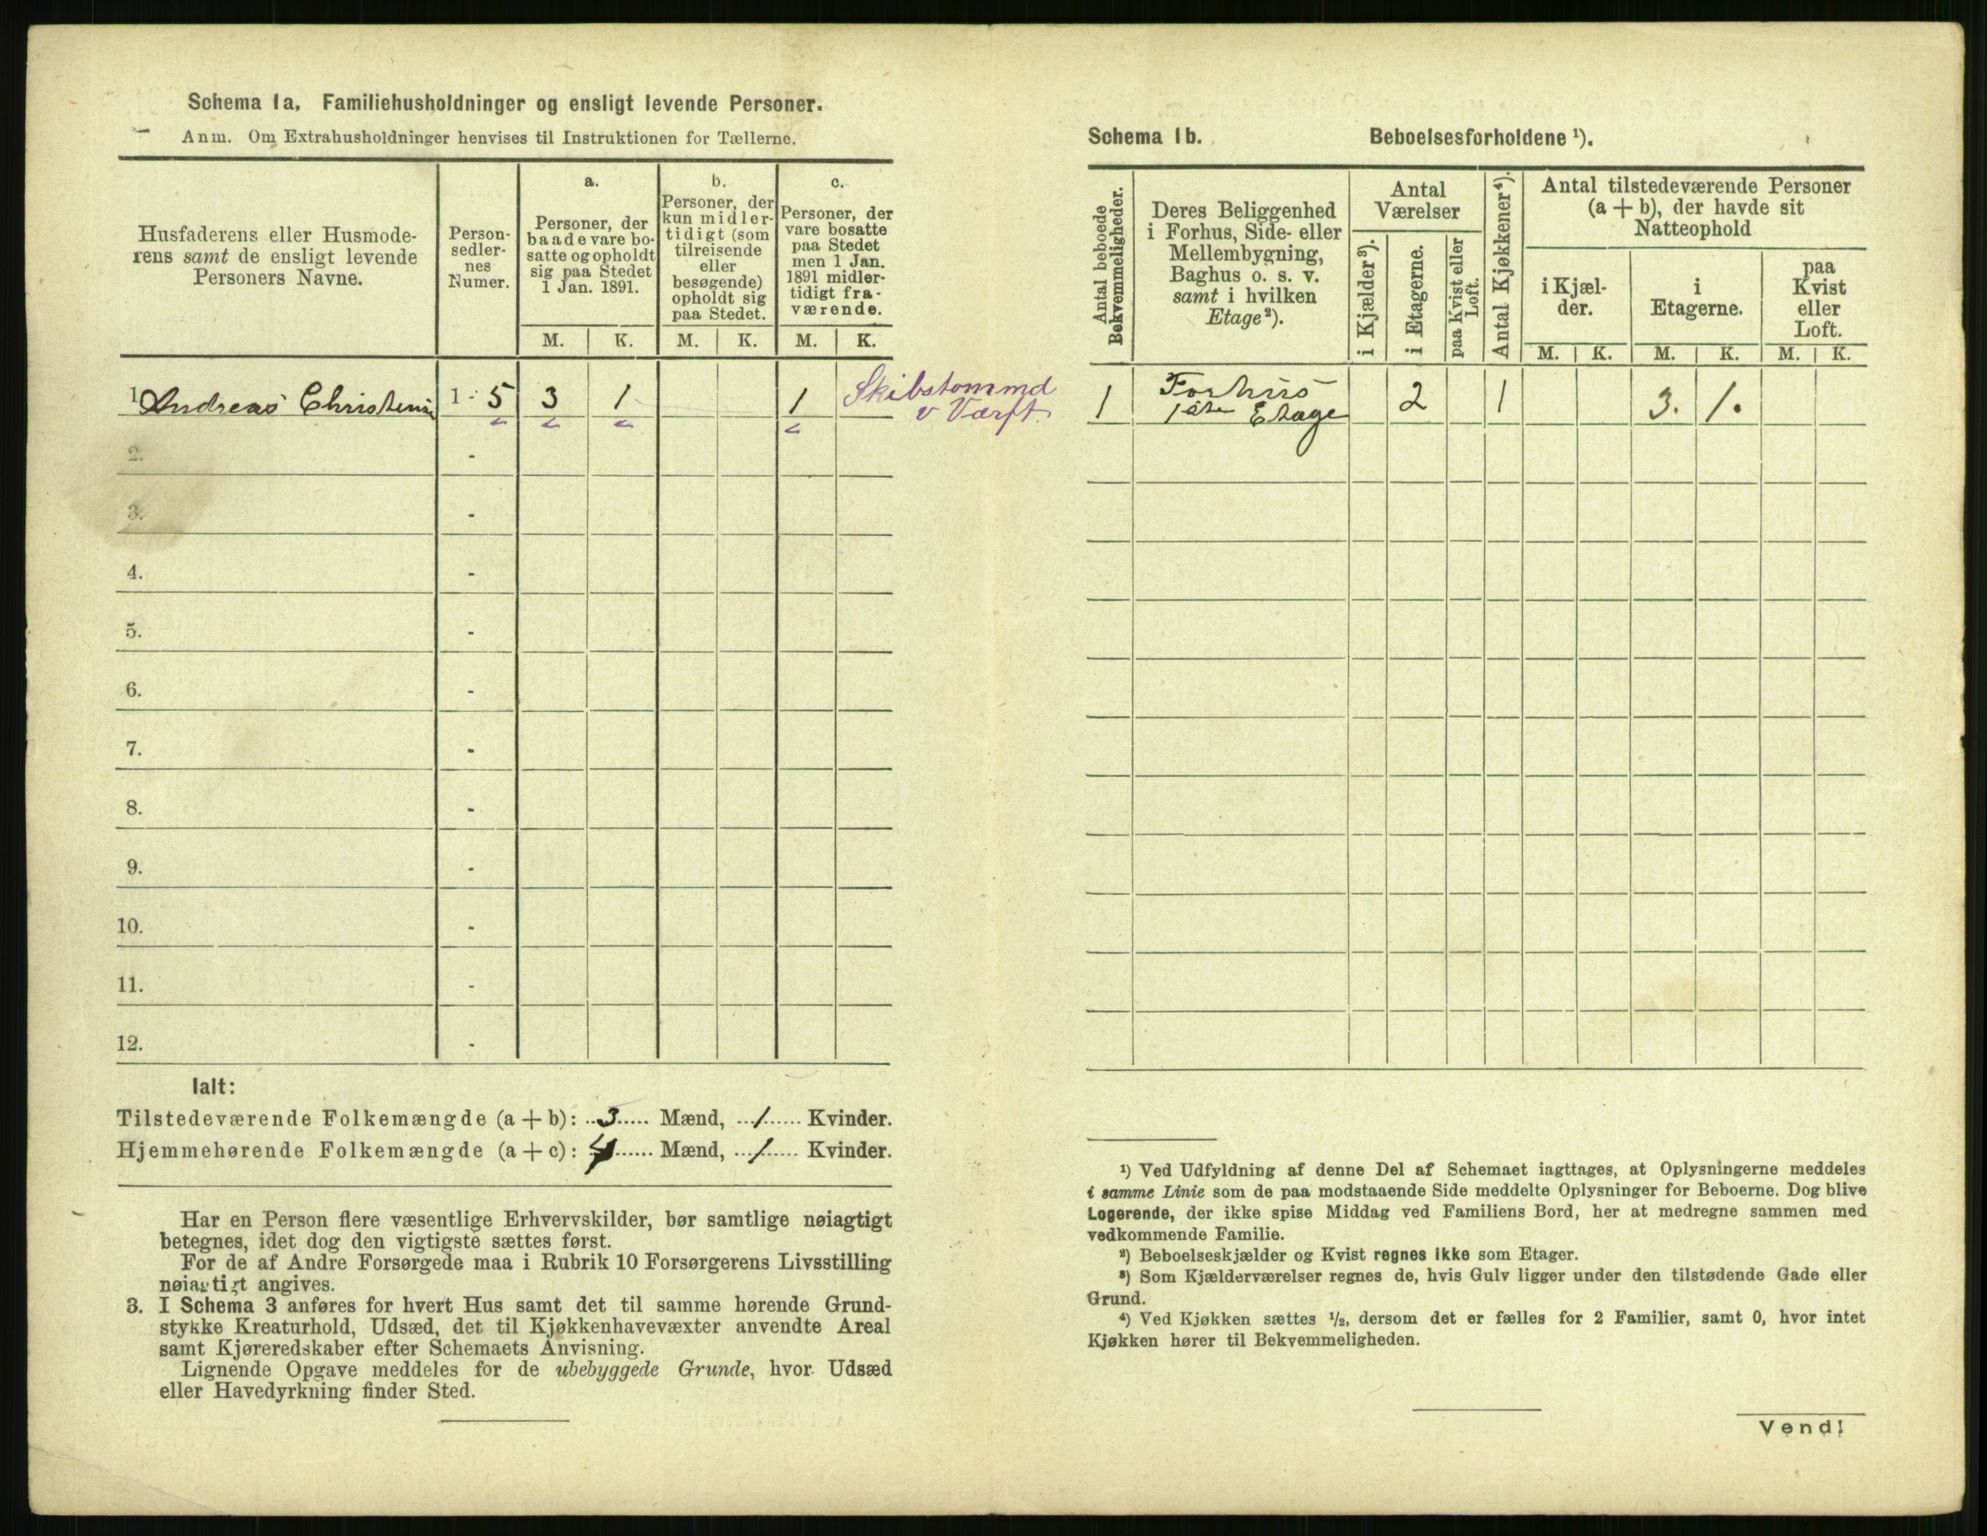 Schema 1a. Familiehusholdninger og ensligt levende Personer.
Anm. Om Extrahusholdninger henvises til Instruktionen for Tællerne.
Husfaderens eller Husmode-
rens samt de ensligt levende
Personers Navne.
Person-
sedler-
nes
Numer.
a.
Personer, der
baade vare bo-
satte og opholdt
sig paa Stedet
1 Jan. 1891.
b.
Personer, der
kun midler-
tidigt (som
tilreisende
eller
besøgende)
opholdt sig
paa Stedet.
c.
Personer, der
vare bosatte
paa Stedet
men 1 Jan.
1891 midler-
tidigt fra-
værende.
M. K. M. K. M. K.
1. Andreas 1 - 5 3 1 1 Skibstømmd
v Værft.
2. -
3. -
4. -
5. -
6. -
7. -
8. -
9. -
10. -
11. -
12. -
Ialt:
Tilstedeværende Folkemængde (a + b): 3 Mænd, 1 Kvinder.
Hjemmehørende Folkemængde (a + c): 4 Mænd, 1 Kvinder.
Har en Person flere væsentlige Erhvervskilder, bør samtlige nøiagtigt
betegnes, idet dog den vigtigste sættes først.
For de af Andre Forsørgede maa i Rubrik 10 Forsørgerens Livsstilling
nøiagtigt angives.
3. I Schema 3 anføres for hvert Hus samt det til samme hørende Grund-
stykke Kreaturhold, Udsæd, det til Kjøkkenhavevæxter anvendte Areal
samt Kjøreredskaber efter Schemaets Anvisning.
Lignende Opgave meddeles for de ubebyggede Grunde, hvor Udsæd
eller Havedyrkning finder Sted.
Schema 1b. Beboelsesforholdene ¹).
Antal beboede
Bekvemmeligheder.
Deres Beliggenhed
i Forhus, Side- eller
Mellembygning,
Baghus o. s. v.
samt i hvilken
Etage²).
Antal
Værelser
i Kjælder³).
i Etagerne.
paa Kvist eller
Loft.
Antal Kjøkkener⁴).
Antal tilstedeværende Personer
(a + b), der havde sit
Natteophold
i Kjæl-
der.
i
Etagerne.
paa
Kvist
eller
Loft.
M. K. M. K. M. K.
1 Forhus
1ste Etage 2 1 3. 1.
¹) Ved Udfyldning af denne Del af Schemaet iagttages, at Oplysningerne meddeles
i samme Linie som de paa modstaaende Side meddelte Oplysninger for Beboerne. Dog blive
Logerende, der ikke spise Middag ved Familiens Bord, her at medregne sammen med
vedkommende Familie.
²) Beboelseskjælder og Kvist regnes ikke som Etager.
³) Som Kjælderværelser regnes de, hvis Gulv ligger under den tilstødende Gade eller
Grund.
⁴) Ved Kjøkken sættes ½, dersom det er fælles for 2 Familier, samt 0, hvor intet
Kjøkken hører til Bekvemmeligheden.
Vend!